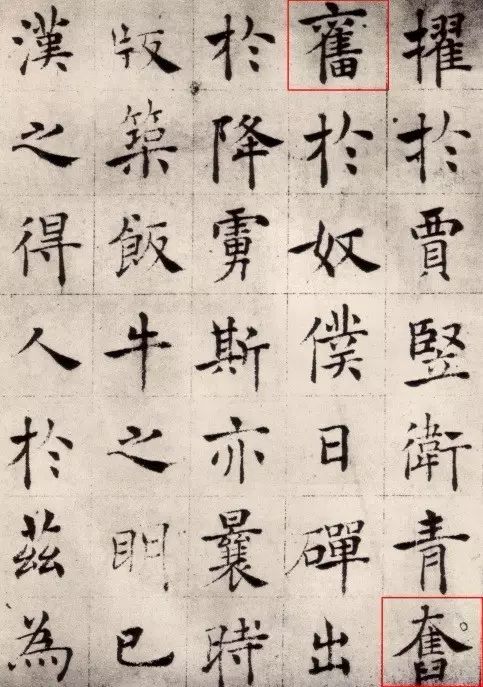 擢於賈豎衛青奮
奮於奴僕日磾出
於降虜斯亦曩時
版築飯牛之明已
漢之得人於茲為